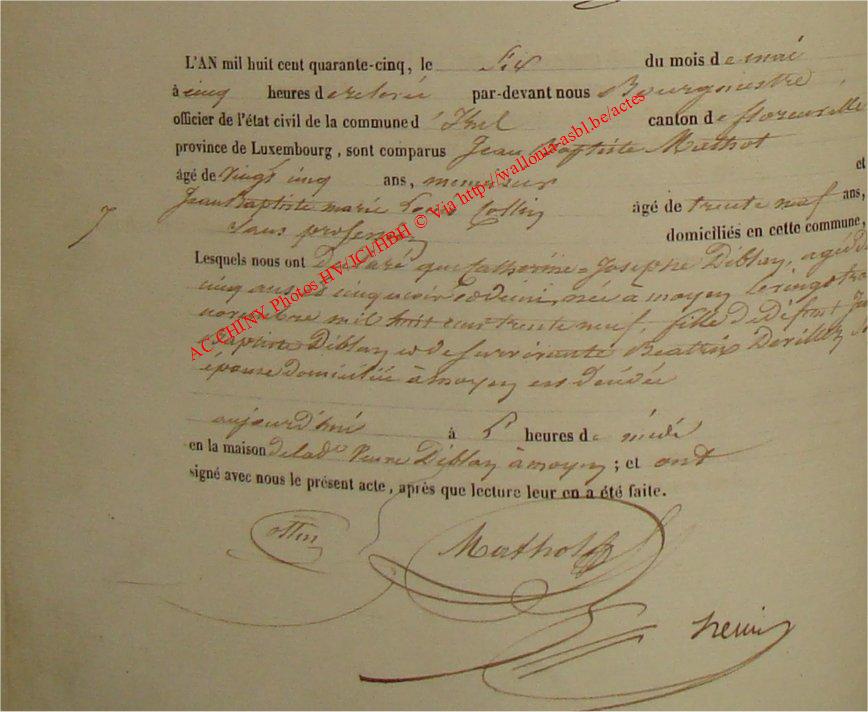 L'AN mil huit cent quarante-cinq, le Six du mois de mai
à cinq heures de relevée par-devant nous Bourgmestre
officier de l'état civil de la commune d'Izel canton de florenville
province de Luxembourg, sont comparus Jean Baptiste Mathot
âgé de vingt cinq ans, menuisier et
Jean Baptiste marie Louis Collin âgé de trente neuf ans,
7
sans profession domiciliés en cette commune,
Lesquels nous ont Déclaré que Catherine=Josephe Diblay, agée de
cinq ans cinq mois née à moyen le vingt
novembre mil huit cent trente neuf, fille de Défunt
Baptiste Diblay et de survivante Beatrix Devillez
épouse domiciliée à moyen est décédée
aujourd'hui à heures de midi
en la maison de lad.e Veuve Diblay à moyen; et ont
signé avec nous le présent acte, après que lecture leur en a été faite.
Collin Mathot
AC CHINY Photos HV/JCl/HBH © Via http://wallonia-asbl.be/actes